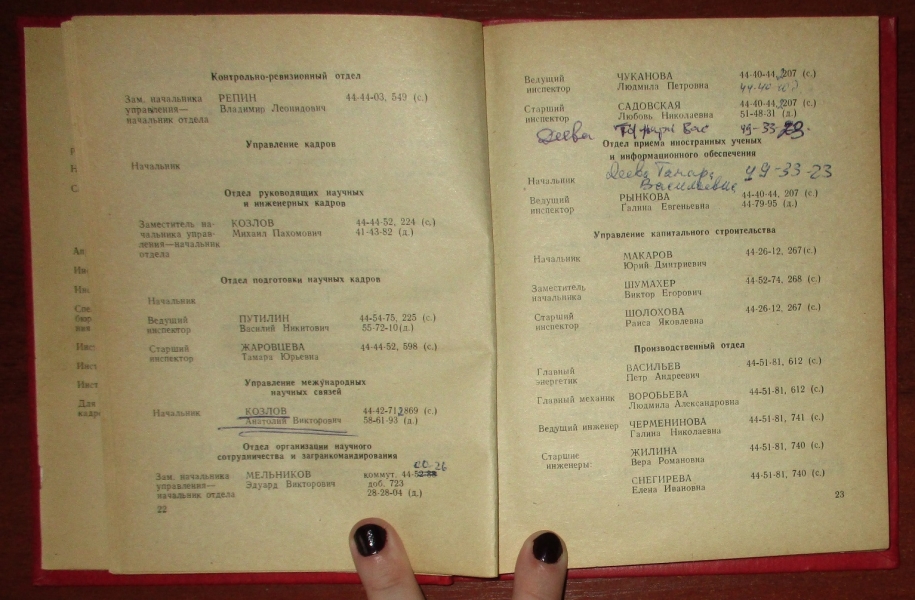 Контрольно-ревизионный отдел
Зам. начальника РЕПИН 44-44-03, 549 (с.)
управления— Владимир Леонидович
начальник отдела
Управление кадров
Начальник
Отдел руководящих научных
и инженерных кадров
Заместитель на- КОЗЛОВ 44-44-52, 224 (с.)
чальника управ- Михаил Пахомович 41-43-82 (д.)
ления—начальник
отдела
Отдел подготовки научных кадров
Начальник
Ведущий ПУТИЛИН 44-54-75, 225 (с.)
инспектор Василий Никитович 55-72-10(д.)
Старший ЖАРОВЦЕВА 44-44-52, 598 (с.)
инспектор Тамара Юрьевна
Управление международных
научных связей
Начальник КОЗЛОВ 44-42-71, 869 (с.)
Анатолий Викторович 58-61-93 (д.)
Отдел организации научного
сотрудничества и загранкомандирования
00-26
Зам. начальника МЕЛЬНИКОВ коммут. 44-
управления— Эдуард Викторович доб. 723
начальник отдела 28-28-04 (д.)
22
Ведущий ЧУКАНОВА 44-40-44, 207 (с.)
инспектор Людмила Петровна
Старший САДОВСКАЯ 44-40-44, 207 (с.)
инспектор Любовь Николаевна 51-48-31 (д.)
Деева Вас 49-33
Отдел приема иностранных ученых
и информационного обеспечения
Начальник Деева Тамара 49-33-23
Васильевна
Ведущий РЫНКОВА 44-40-44, 207 (с.)
инспектор Галина Евгеньевна 44-79-95 (д.)
Управление капитального строительства
Начальник МАКАРОВ 44-26-12, 267(с.)
Юрий Дмитриевич
Заместитель ШУМАХЕР 44-52-74, 268 (с.)
начальника Виктор Егорович
Старший ШОЛОХОВА 44-26-12, 267 (с.)
инспектор Раиса Яковлевна
Производственный отдел
Главный ВАСИЛЬЕВ 44-51-81, 612 (с.)
энергетик Петр Андреевич
Главный механик ВОРОБЬЕВА 44-51-81, 612 (с.)
Людмила Александровна
Ведущий инженер ЧЕРМЕНИНОВА 44-51-81, 741 (с.)
Галина Николаевна
Старшие ЖИЛИНА 44-51-81, 740 (с.)
инженеры: Вера Романовна
СНЕГИРЕВА 44-51-81, 740 (с.)
Елена Ивановна
23